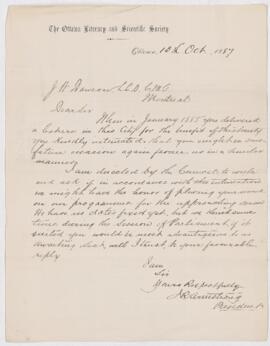 The Ottawa Literary and Scientific Society
Ottawa, 15th Oct. 1887
J W Dawson L.L.D. C.M.G.
Montreal
Dear Sir
When in January 1885 you delivered
a Lecture in this City for the benefit of this Society
you kindly intimated that you might on some
future occasion again favor us in a similar
manner.
I am directed by the Council to write
and ask if in accordance with this intimation
we might have the honor of placing your name
on our programme for the approaching season
We have no dates fixed yet, but we think some
time during the Session of Parliament, if it
suited you would be most advantageous &
awaiting that, will I trust, be your favorable
reply
I am
Sir
Yours Respectfully
J R Armstrong
President